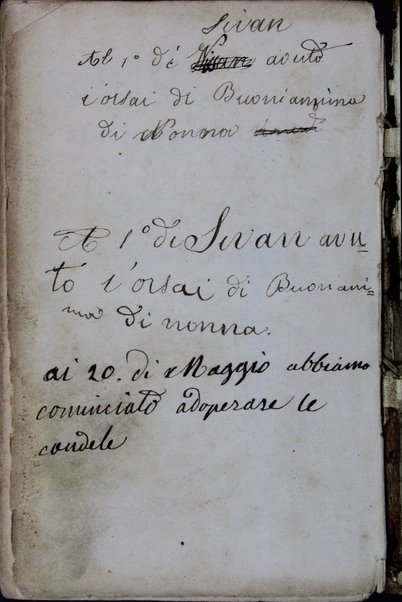 Sivan
Al 1° di Nisan avuto
i'orsai di Buonianima
di Nonna
Al 1° di Sivan avu=
to i'orsai di Buoniani=
ma di nonna.
ai 20. di Maggio abbiamo
cominciato adoperare le
candele